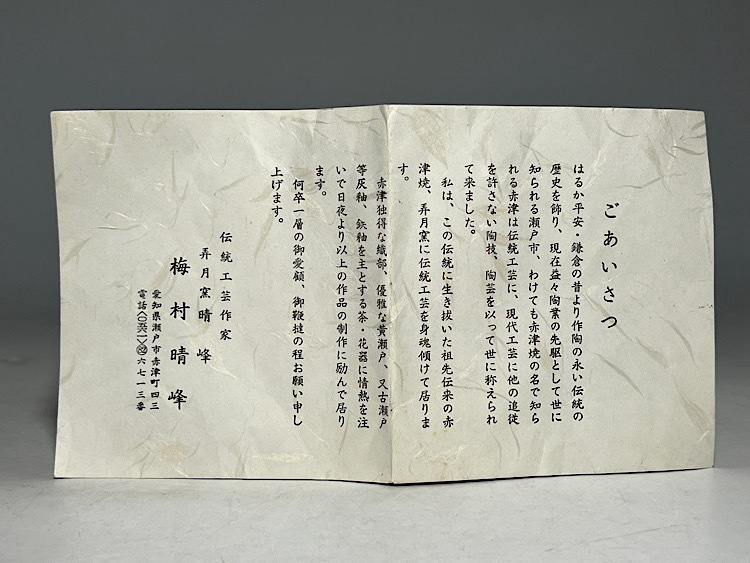 ごあいさつ
はるか平安・鎌倉の昔より作陶の永い伝統の
歴史を飾り、現在益々陶業の先駆として世に
知られる瀬戸市、わけても赤津焼の名で知ら
れる赤津は伝統工芸に、現代工芸に他の追従
を許さない陶技、陶芸を以って世に称えられ
て来ました。
私は、この伝統に生き抜いた祖先伝来の赤
津焼、弄月窯に伝統工芸を身魂傾けて居りま
す。
赤津独得な織部、優雅な黄瀬戸、又古瀬戸
等灰釉、鉄釉を主とする茶・花器に情熱を注
いで日夜より以上の作品の制作に励んで居り
ます。
何卒一層の御愛顧、御鞭撻の程お願い申し
上げます。
伝統工芸作家
弄月窯晴峰
梅村晴峰
愛知県瀬戸市赤津町四三
電話〈〇五六一〉 六七一三番